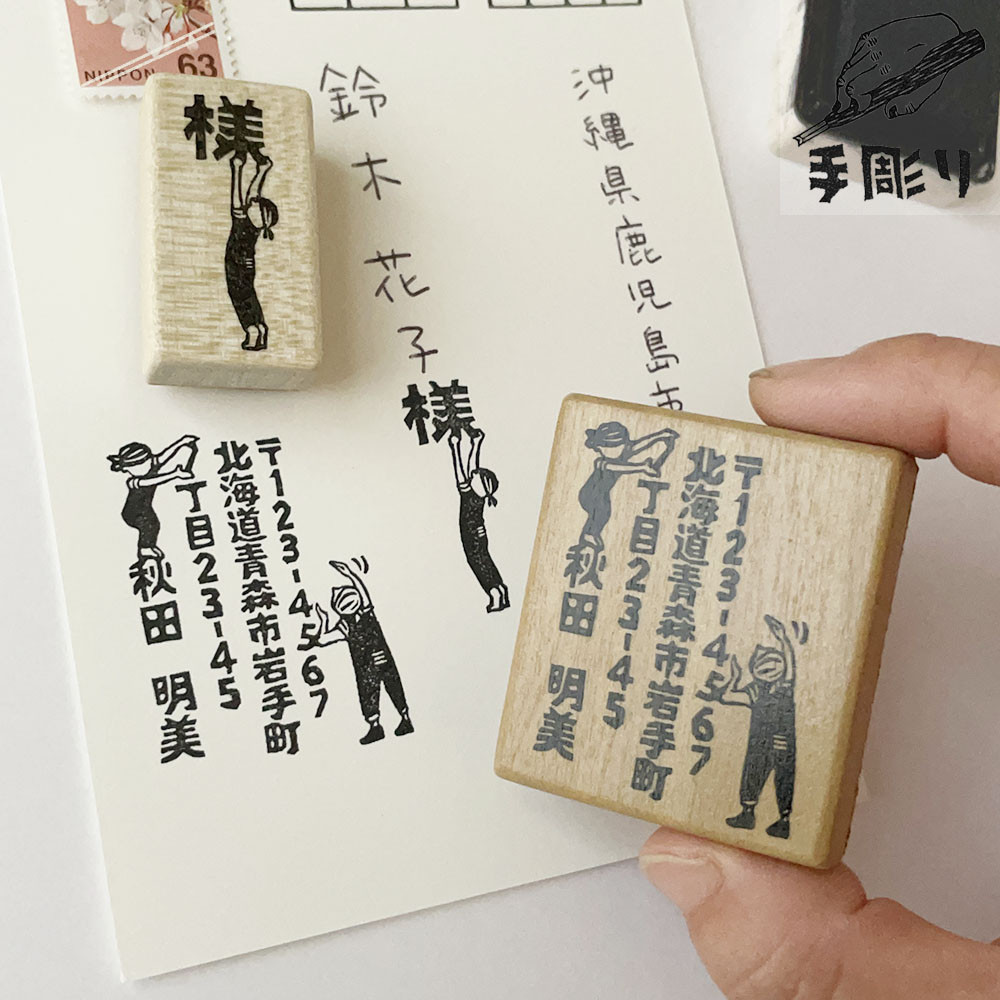 NIPPON 63
手彫り
沖縄県鹿児島市
鈴木花子
様
様
〒123-4567
北海道青森市岩手町
丁目23-45
秋田 明美
〒123-4567
北海道青森市岩手町
丁目23-45
秋田 明美